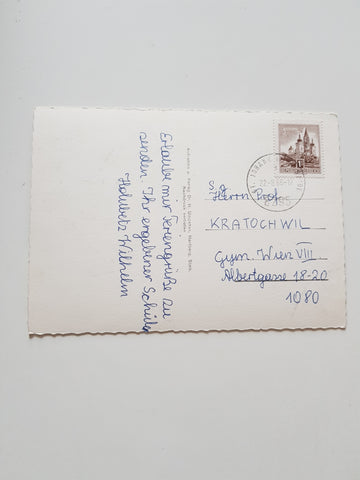 Erlaube mir Feriengrüße zu
senden Ihr ergebener Schüler
Holubetz Wilhelm
S.g.
Herrn Prof.
KRATOCHWIL
Gym. Wien VIII
Albertgasse 18-20
1080